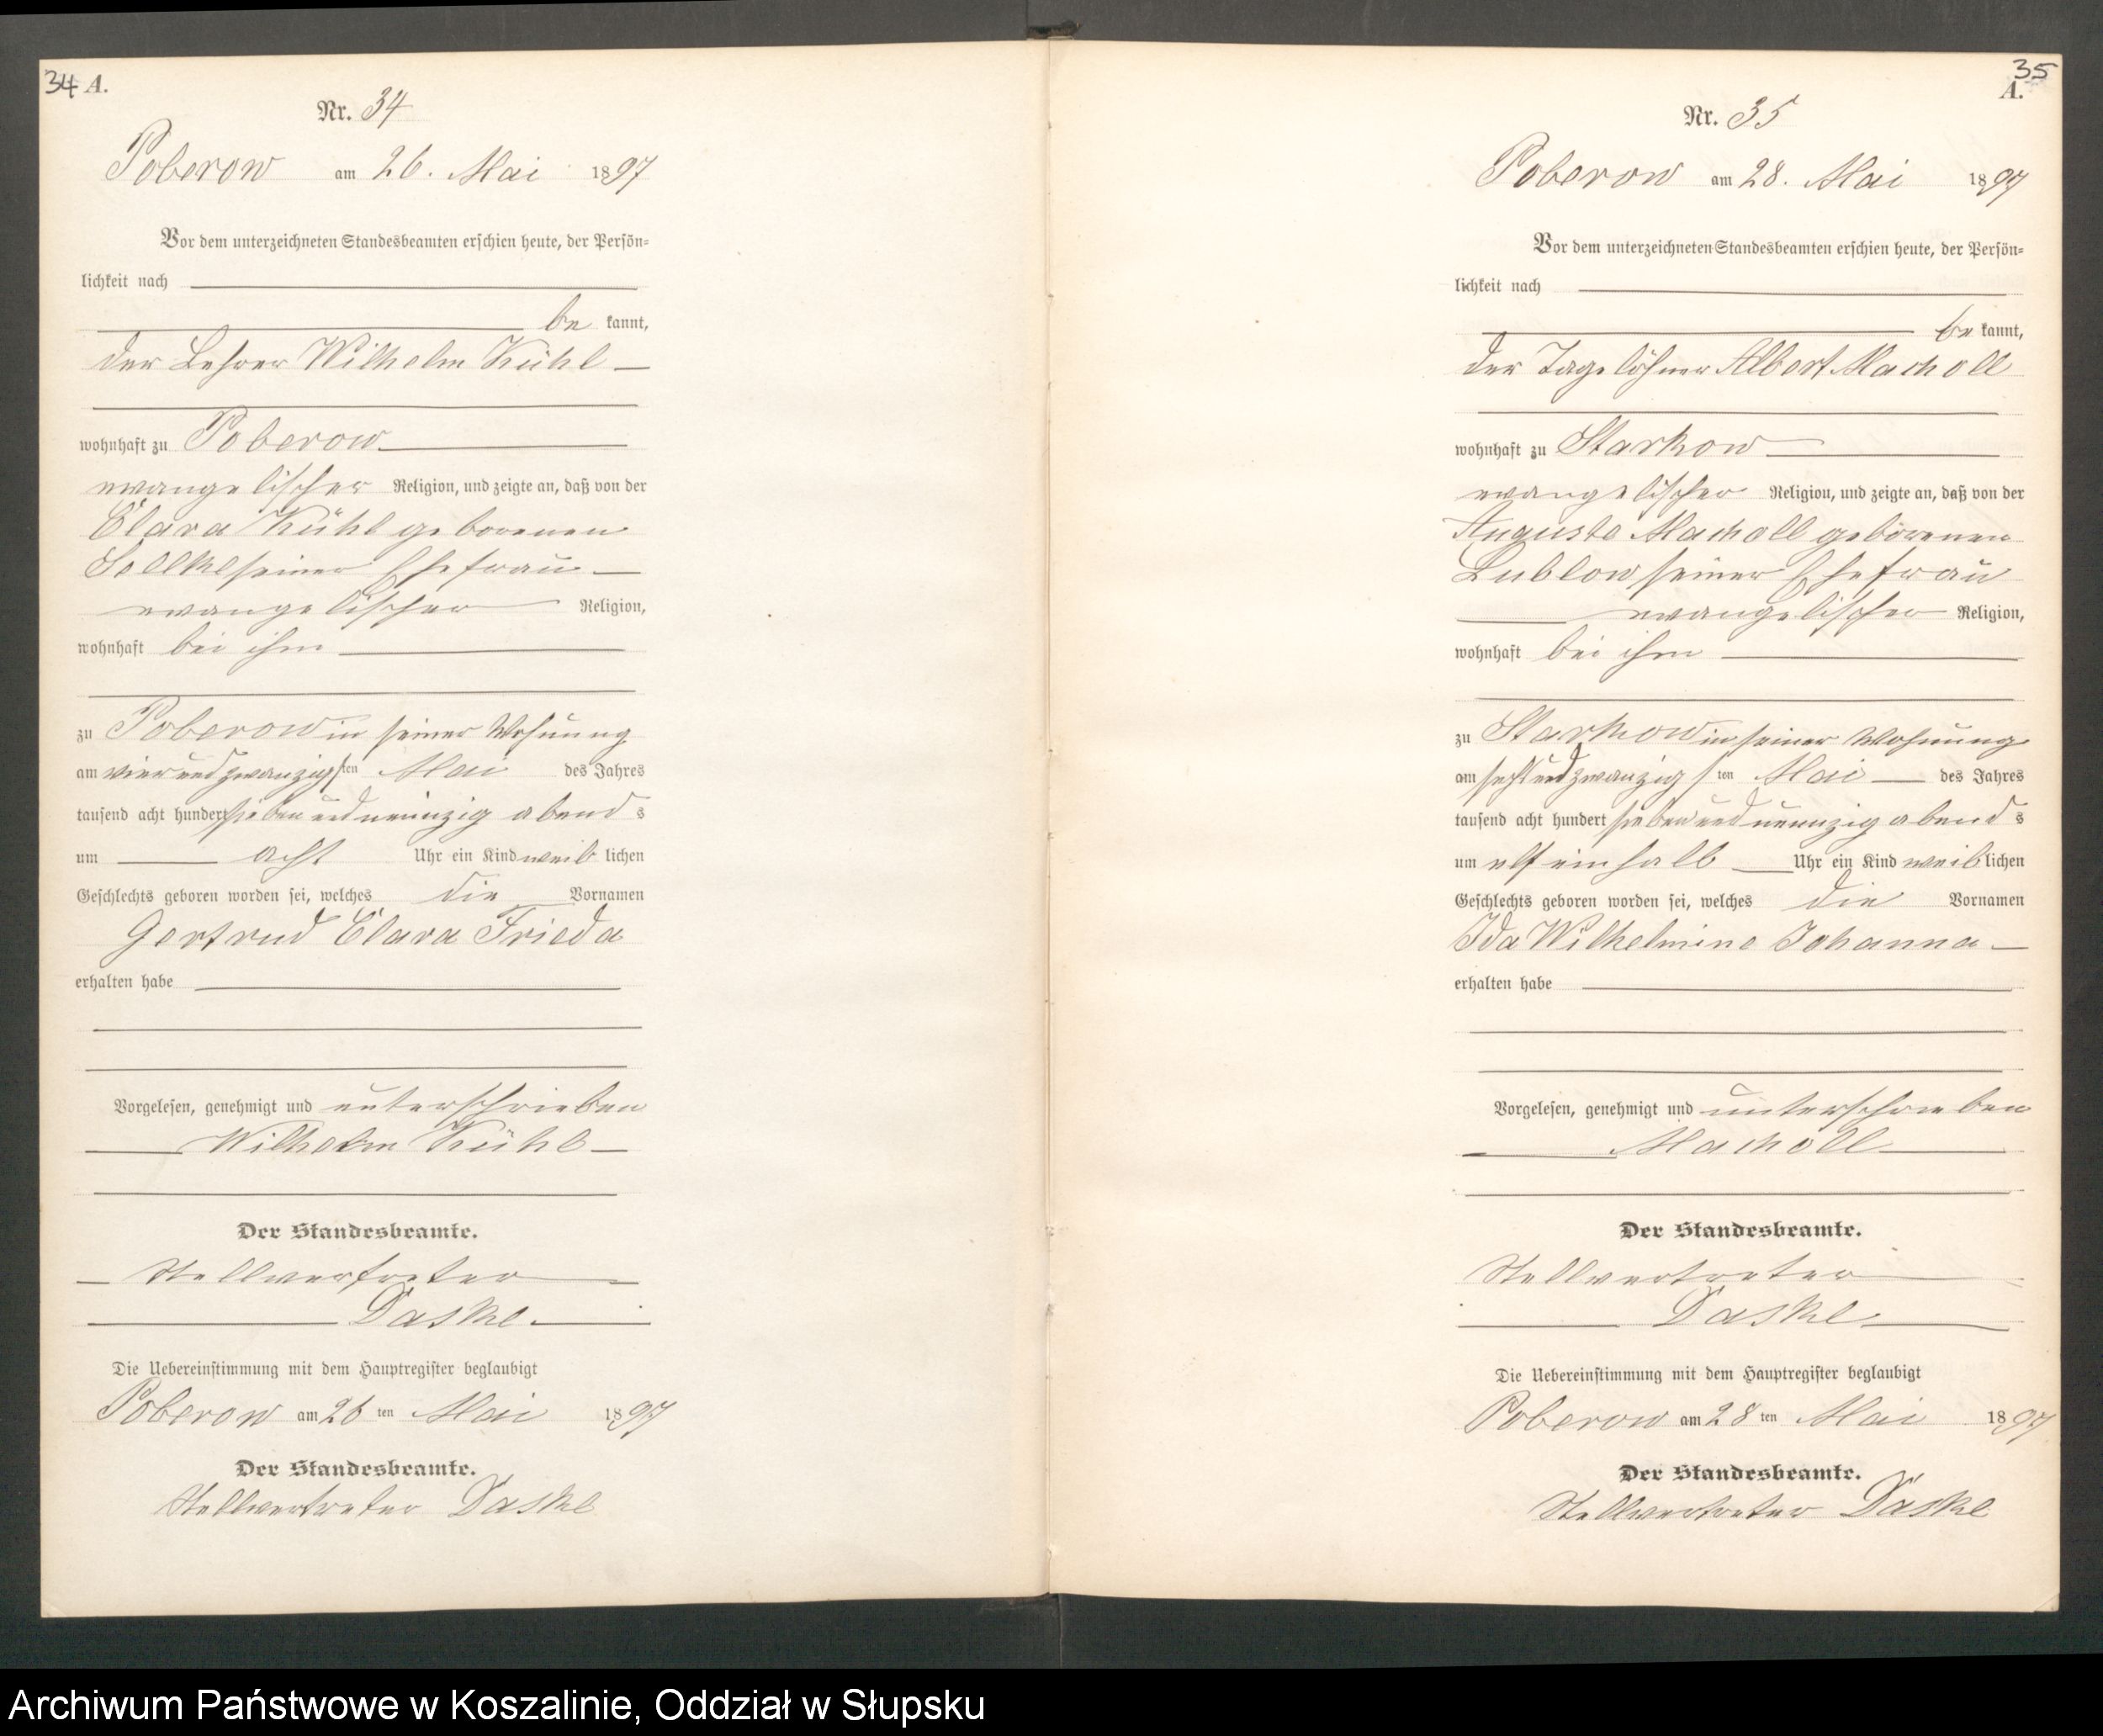 34 A.
Nr. 34
Poberow am 26. Mai 1897
Vor dem unterzeichneten Standesbeamten erschien heute, der Persön-
lichkeit nach
be kannt,
der Lehrer Wilhelm Kühl
wohnhaft zu Poberow
evangelischer Religion, und zeigte an, daß von der
Clara Kühl geborenen
seiner Ehefrau
evangelischer Religion,
wohnhaft bei ihm
zu Poberow in seiner Wohnung
am vierundzwanzigsten Mai des Jahres
tausend acht hundert sieben und neunzig abends
um acht Uhr ein Kind weiblichen
Geschlechts geboren worden sei, welches die Vornamen
Gertrud Clara Frieda
erhalten habe
Vorgelesen, genehmigt und unterschrieben
Wilhelm Kühl
Der Standesbeamte.
Stellvertreter
Daske
Die Uebereinstimmung mit dem Hauptregister beglaubigt
Poberow am 26 ten Mai 1897
Der Standesbeamte.
Stellvertreter Daske
35
A.
Nr. 35
Poberow am 28. Mai 1897
Vor dem unterzeichneten Standesbeamten erschien heute, der Persön-
lichkeit nach
be kannt,
der Tagelöhner Albert Macholl
wohnhaft zu Starkow
evangelischer Religion, und zeigte an, daß von der
Auguste Macholl geborenen
Lublow seiner Ehefrau
evangelischer Religion,
wohnhaft bei ihm
zu Starkow in seiner Wohnung
am sechsundzwanzigsten Mai des Jahres
tausend acht hundert sieben und neunzig abends
um elf einhalb Uhr ein Kind weiblichen
Geschlechts geboren worden sei, welches die Vornamen
Ida Wilhelmine Johanna
erhalten habe
Vorgelesen, genehmigt und unterschrieben
Macholl
Der Standesbeamte.
Stellvertreter
Daske
Die Uebereinstimmung mit dem Hauptregister beglaubigt
Poberow am 28 ten Mai 1897
Der Standesbeamte.
Stellvertreter Daske
Archiwum Państwowe w Koszalinie, Oddział w Słupsku